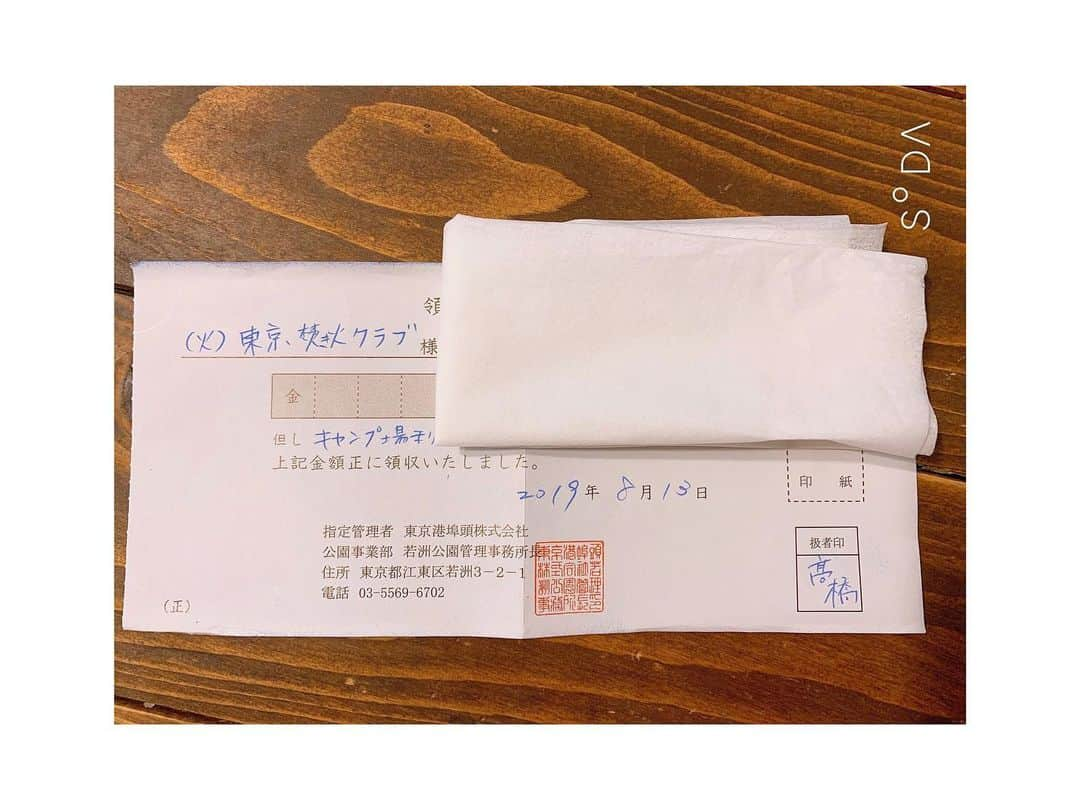 領
(火) 東京、焚火クラブ 様
金
但し キャンプ場利
上記金額正に領収いたしました。
2019年 8月13日
印 紙
指定管理者 東京港埠頭株式会社
公園事業部 若洲公園管理事務所長
住所 東京都江東区若洲3-2-1
電話 03-5569-6702
扱者印
高橋
(正)